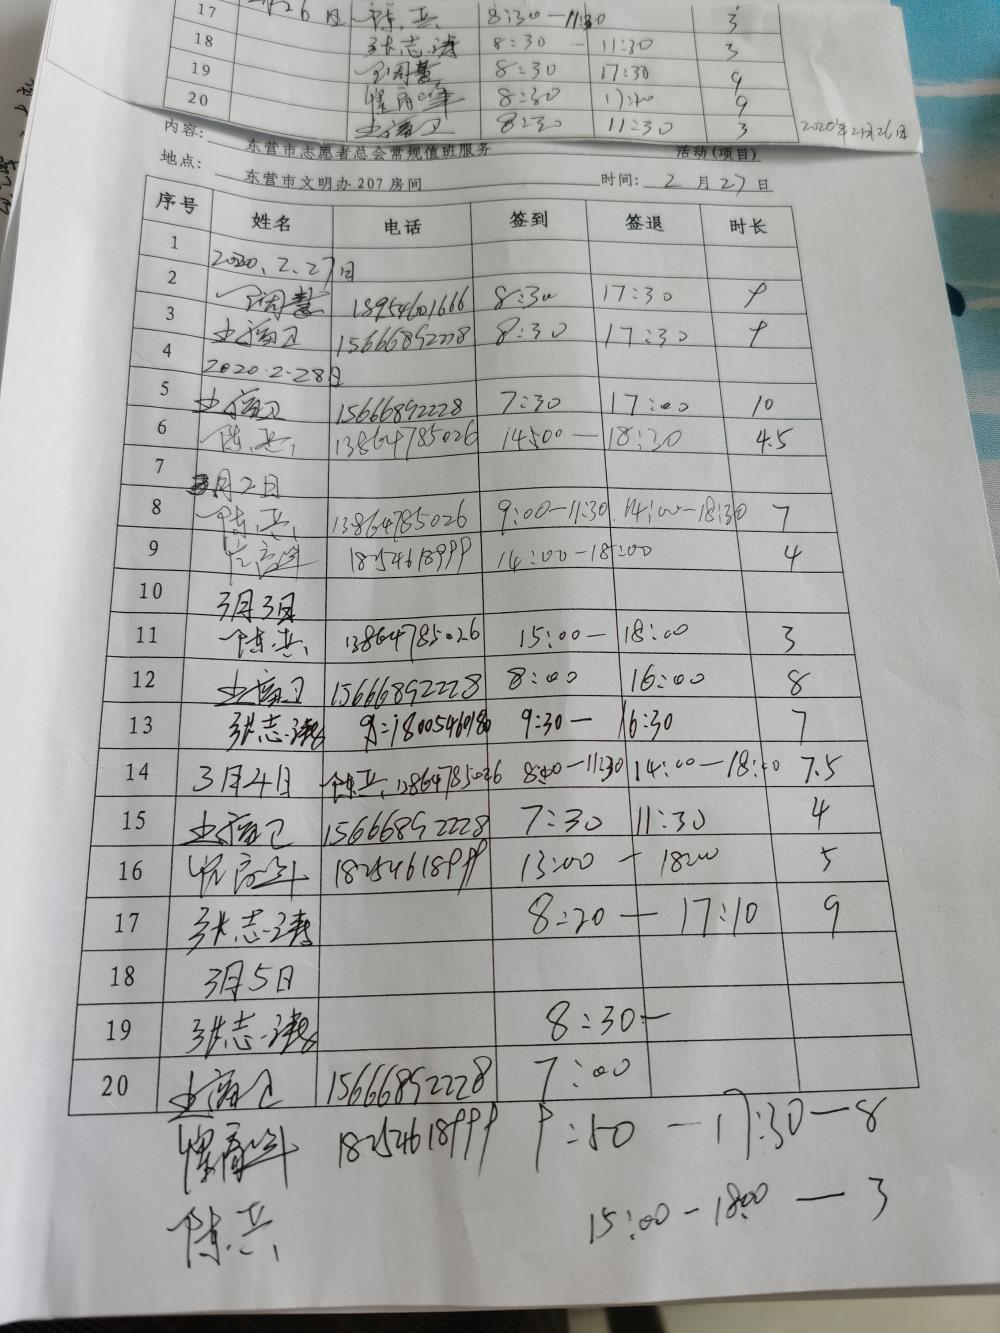 17 月26日 陈兵 8:30—11:30 3
18 张志涛 8:30 — 11:30 3
19 8:30 17:30 9
20 8:30 17:20 9
8:30 11:30 3 2020年2月26日
内容: 东营市志愿者总会常规值班服务 活动(项目)
地点: 东营市文明办207房间 时间: 2月27日
序号 姓名 电话 签到 签退 时长
1 2020.2.27日
2 18954601666 8:30 17:30 9
3 15666892228 8:30 17:30 9
4 2020.2.28日
5 15666892228 7:30 17:00 10
6 陈兵 13864785026 14:00— 18:30 4.5
7 3月2日
8 陈兵 13864785026 9:00—11:30 14:00—18:30 7
9 18254618999 14:00—18:00 4
10 3月3日
11 陈兵 13864785026 15:00— 18:00 3
12 15666892228 8:00 16:00 8
13 张志涛 9:30— 16:30 7
14 3月4日 陈兵 13864785026 8:00—11:30 14:00—18:00 7.5
15 15666892228 7:30 11:30 4
16 18254618999 13:00 — 1800 5
17 张志涛 8:20 — 17:10 9
18 3月5日
19 张志涛 8:30—
20 15666892228 7:00
18254618999 9:50 —17:30—8
陈兵 15:00—18:00 — 3